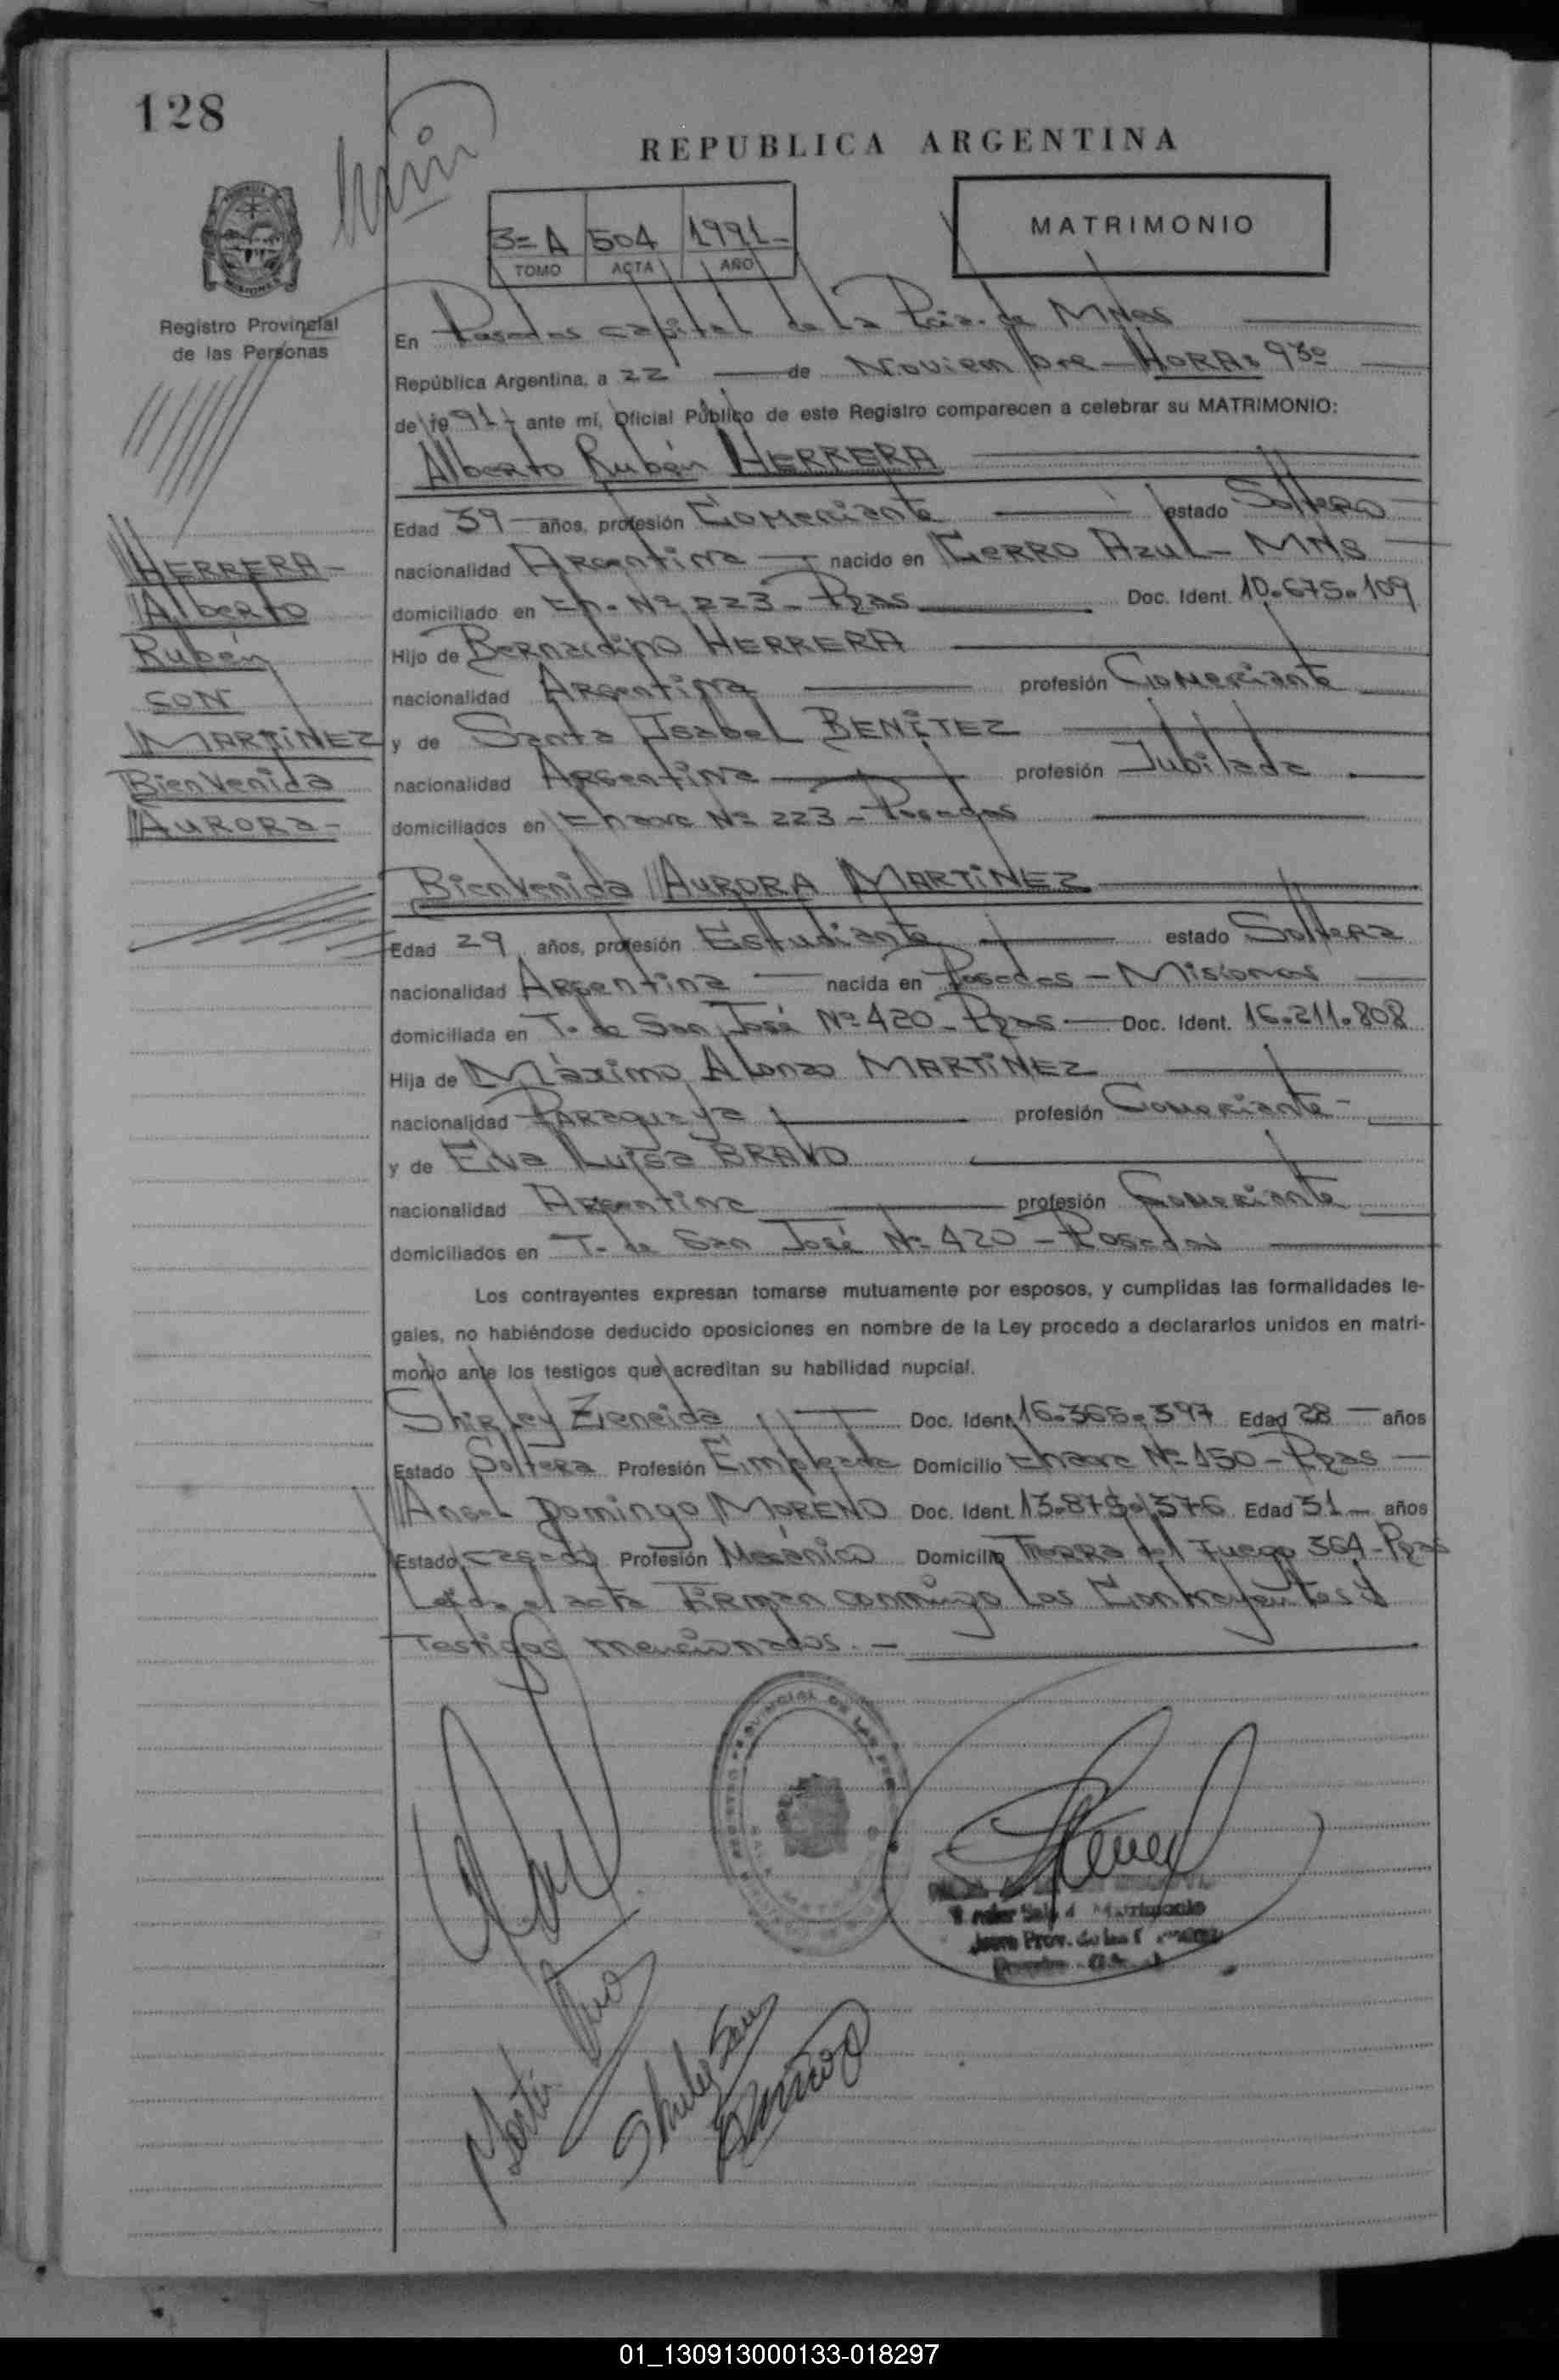 128
REPUBLICA ARGENTINA
3=A 504 1991-
TOMO ACTA AÑO
MATRIMONIO
MISIONES
Registro Provincial
de las Personas
En Posadas capital de la Pcia. de MNes
República Argentina, a 22 de Noviembre - HORAS 9³⁰
de 19 91 ante mí, Oficial Público de este Registro comparecen a celebrar su MATRIMONIO:
Alberto Rubén HERRERA
Edad 39 años, profesión Comerciante estado Soltero
nacionalidad Argentina nacido en CERRO AZUL - MNS
domiciliado en Ch. Nº 223 - Pdas Doc. Ident. 10.675.109
Hijo de Bernardino HERRERA
nacionalidad Argentina profesión Comerciante
y de Santa Isabel BENÍTEZ
nacionalidad Argentina profesión Jubilada
domiciliados en Nº 223 - Posadas
HERRERA -
Alberto
Rubén
CON
MARTÍNEZ
Bienvenida
AURORA -
Bienvenida AURORA MARTÍNEZ
Edad 29 años, profesión Estudiante estado Soltera
nacionalidad Argentina nacida en Posadas - Misiones
domiciliada en T. de San José Nº 420 - Pdas Doc. Ident. 16.211.808
Hija de Máximo Alonzo MARTÍNEZ
nacionalidad Paraguaya profesión Comerciante -
y de Elva Luisa BRAVO
nacionalidad Argentina profesión Comerciante
domiciliados en T. de San José Nº 420 - Posadas
Los contrayentes expresan tomarse mutuamente por esposos, y cumplidas las formalidades le-
gales, no habiéndose deducido oposiciones en nombre de la Ley procedo a declararlos unidos en matri-
monio ante los testigos que acreditan su habilidad nupcial.
Shirley Doc. Ident. 16.365.397 Edad 28 años
Estado Soltera Profesión Empleada Domicilio Nº 150 - Pdas
Angel Domingo MORENO Doc. Ident. 13.873.576 Edad 31 años
Estado casado Profesión Mecánico Domicilio Tierra del Fuego 364 - Pdas
Leída el acta FIRMAN conmigo los Contrayentes y
Testigos mencionados. -
01_130913000133-018297